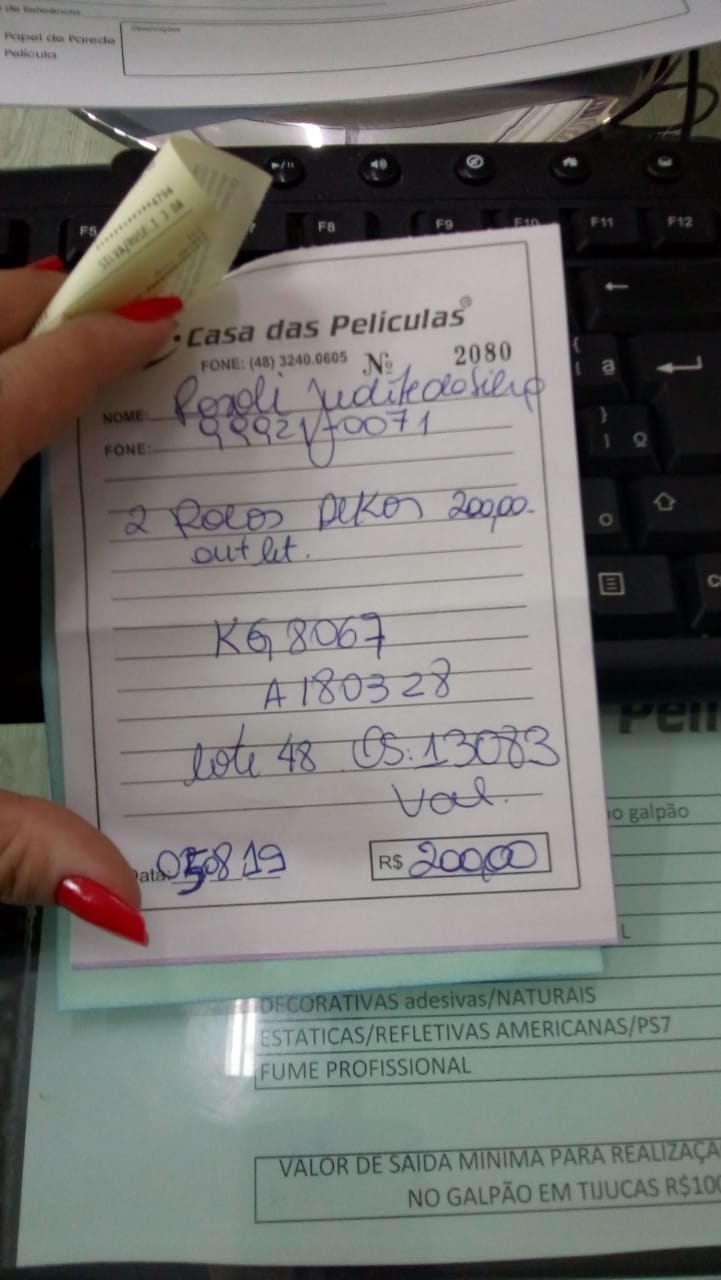 Papel de Parede
Película
Observações
F5
F8
F9
F10
F11
F12
SILVA/ROSE J J DA
Casa das Películas®
FONE: (48) 3240.0605 Nº 2080
NOME: Judite da Silva
FONE:
2 Rolos Dekor 200,00
outlet.
KG 8067
A180328
lote 48 OS: 13083
Val.
Data: 05 08 19
R$ 200,00
no galpão
DECORATIVAS adesivas/NATURAIS
ESTATICAS/REFLETIVAS AMERICANAS/PS7
FUME PROFISSIONAL
VALOR DE SAIDA MINIMA PARA REALIZAÇÃ
NO GALPÃO EM TIJUCAS R$100